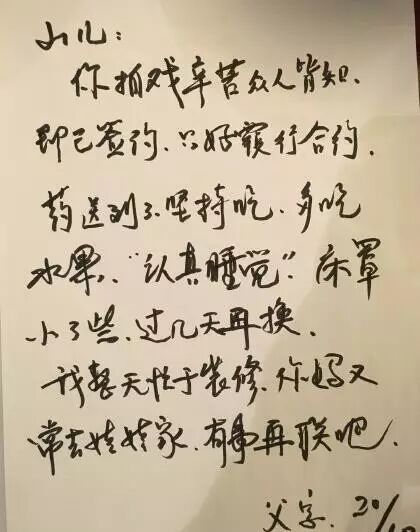 山儿：
你拍戏辛苦众人皆知、
即已签约、只好履行合约、
药送到了、坚持吃、多吃
水果、“认真睡觉”、床罩
小了些、过几天再换、
我整天忙于装修、你妈又
常去娃娃家、有事再联吧、
父字、20/